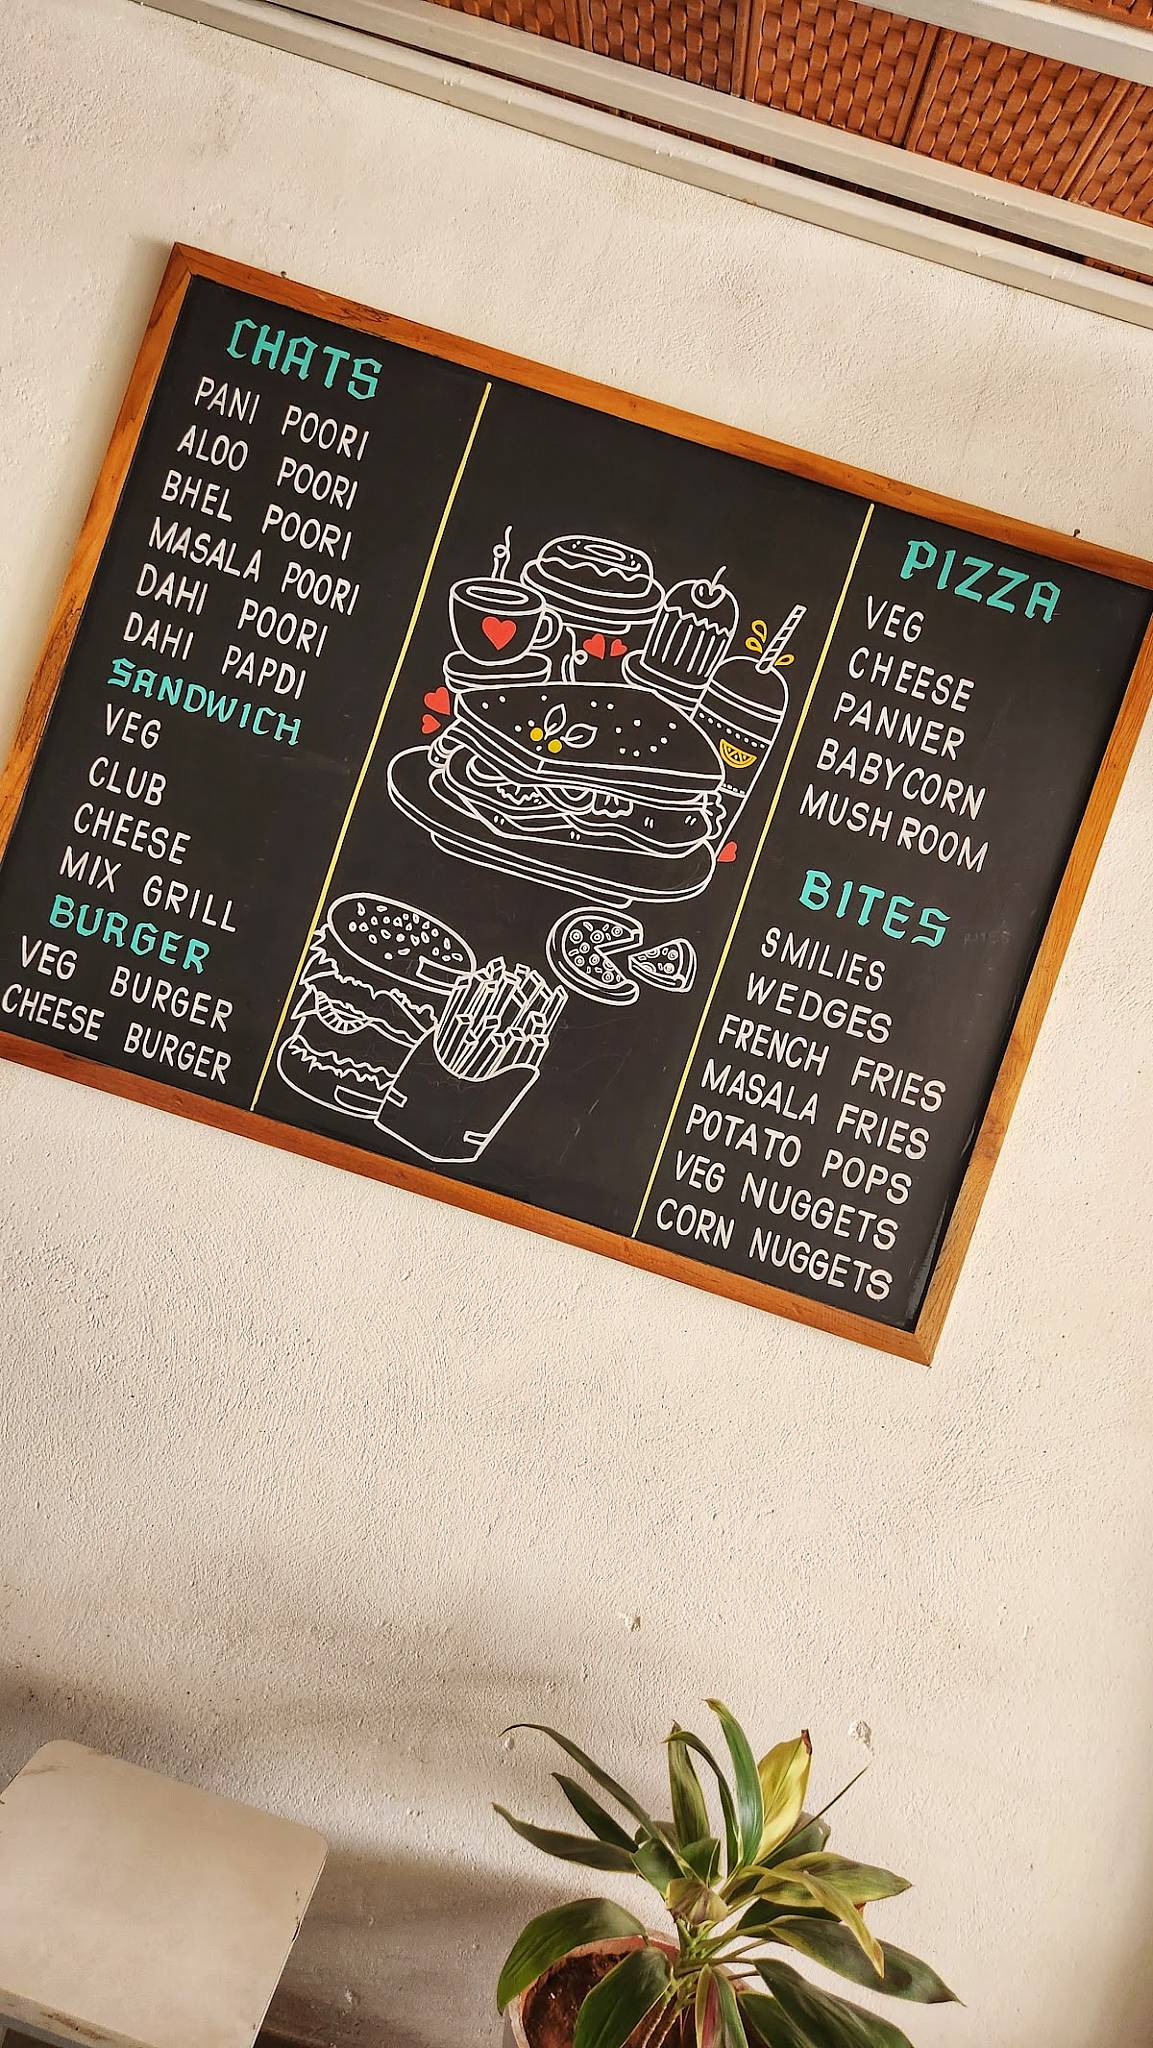 CHATS
PANI POORI
ALOO POORI
BHEL POORI
MASALA POORI
DAHI POORI
DAHI PAPDI
SANDWICH
VEG
CLUB
CHEESE
MIX GRILL
BURGER
VEG BURGER
CHEESE BURGER
PIZZA
VEG
CHEESE
PANNER
BABYCORN
MUSHROOM
BITES
SMILIES
WEDGES
FRENCH FRIES
MASALA FRIES
POTATO POPS
VEG NUGGETS
CORN NUGGETS